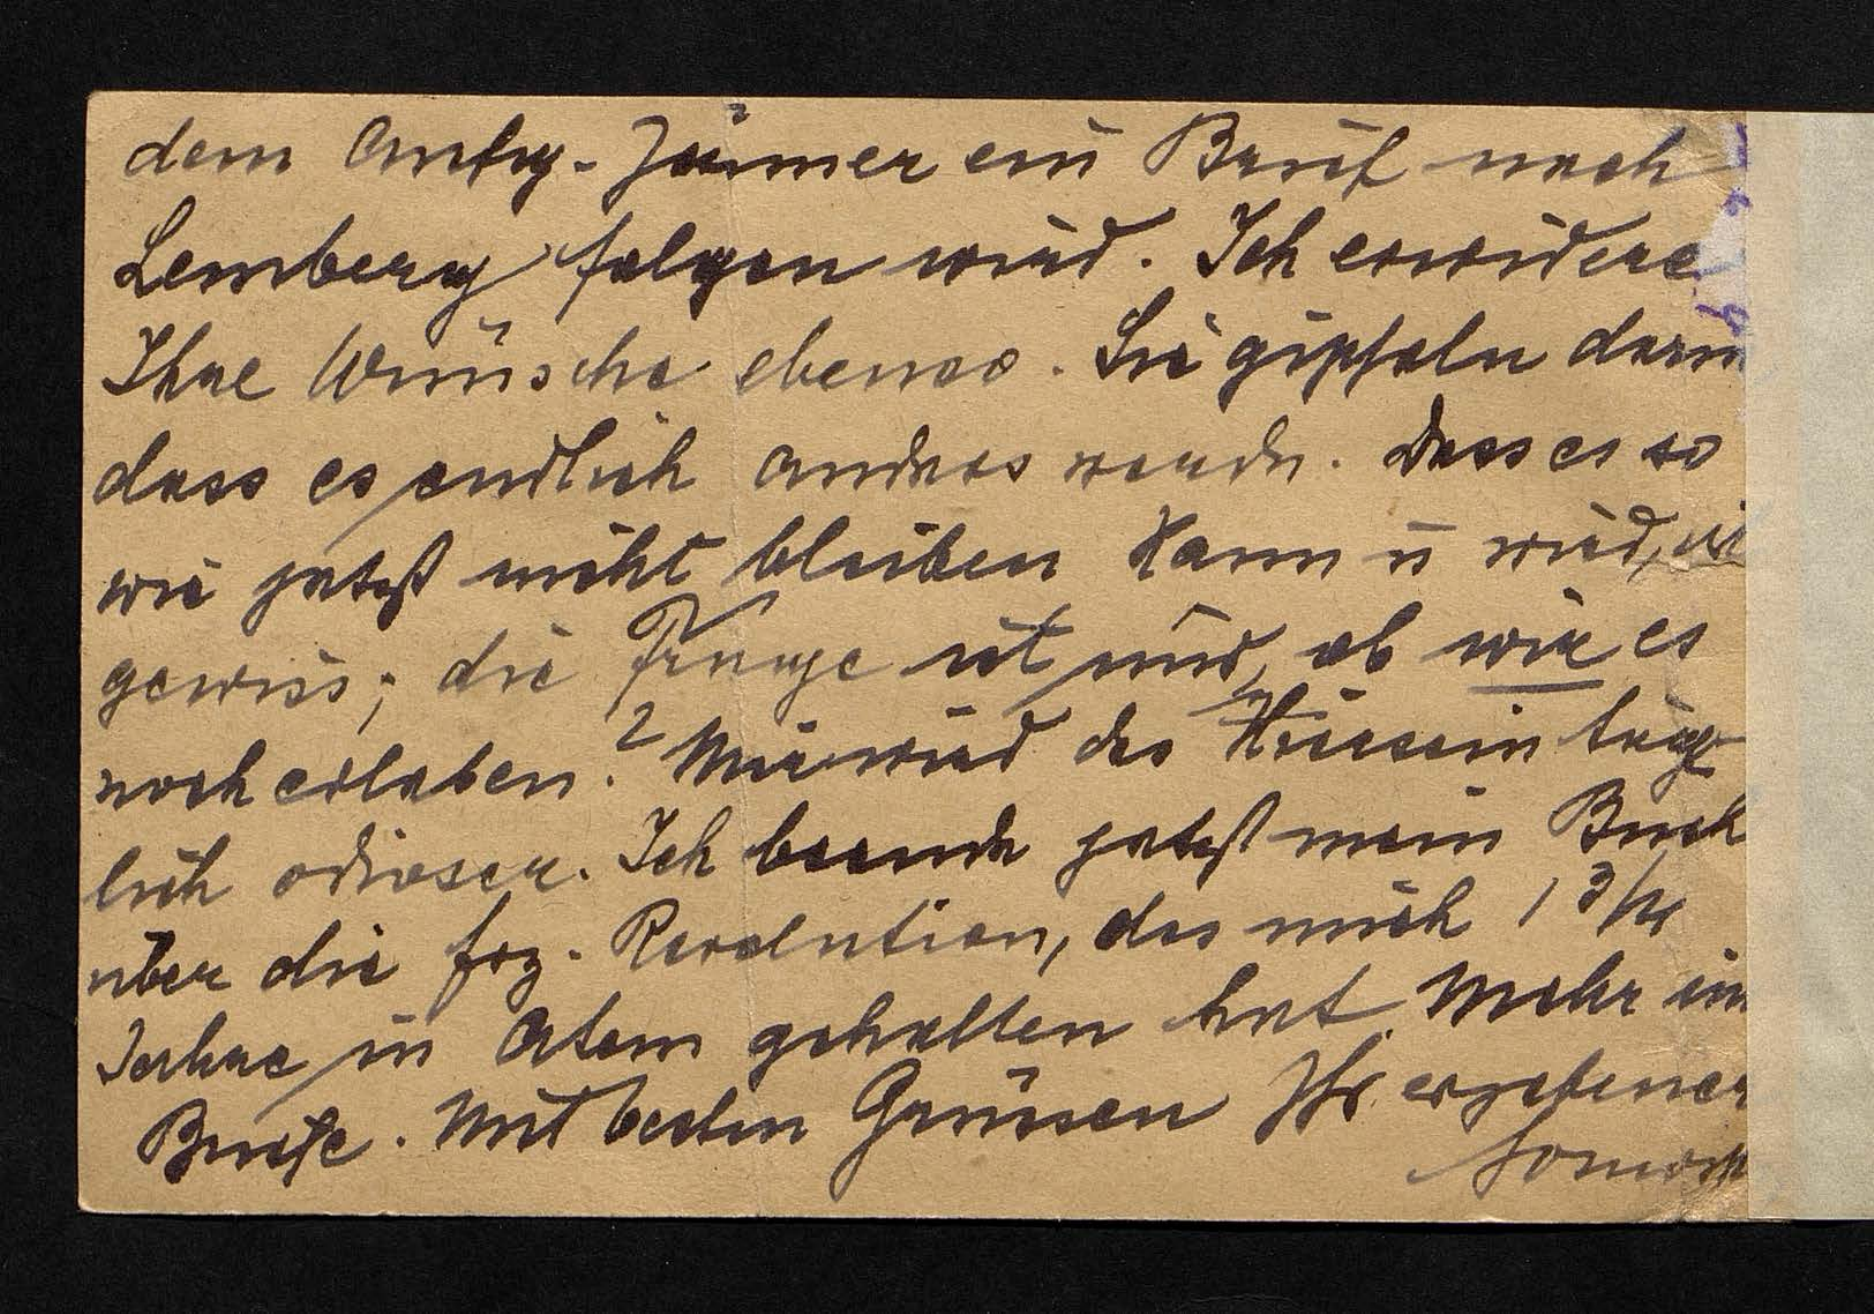 dem Anfg-Jänner ein Brief nach
Lemberg folgen wird. Ich erwidere
Ihre Wünsche ebenso. Sie gipfeln darin
dass es endlich anders werde. Dass es so
wie jetzt nicht bleiben kann u wird, ist
gewiss; die Frage ist nur, ob wir es
noch erleben? Mir wird das Hiersein täg-
lich odioser. Ich beende jetzt mein Buch
über die frz. Revolution, das mich 1 3/4
Jahre in Atem gehalten hat. Mehr im
Briefe. Mit besten Grüssen Ihr ergebener